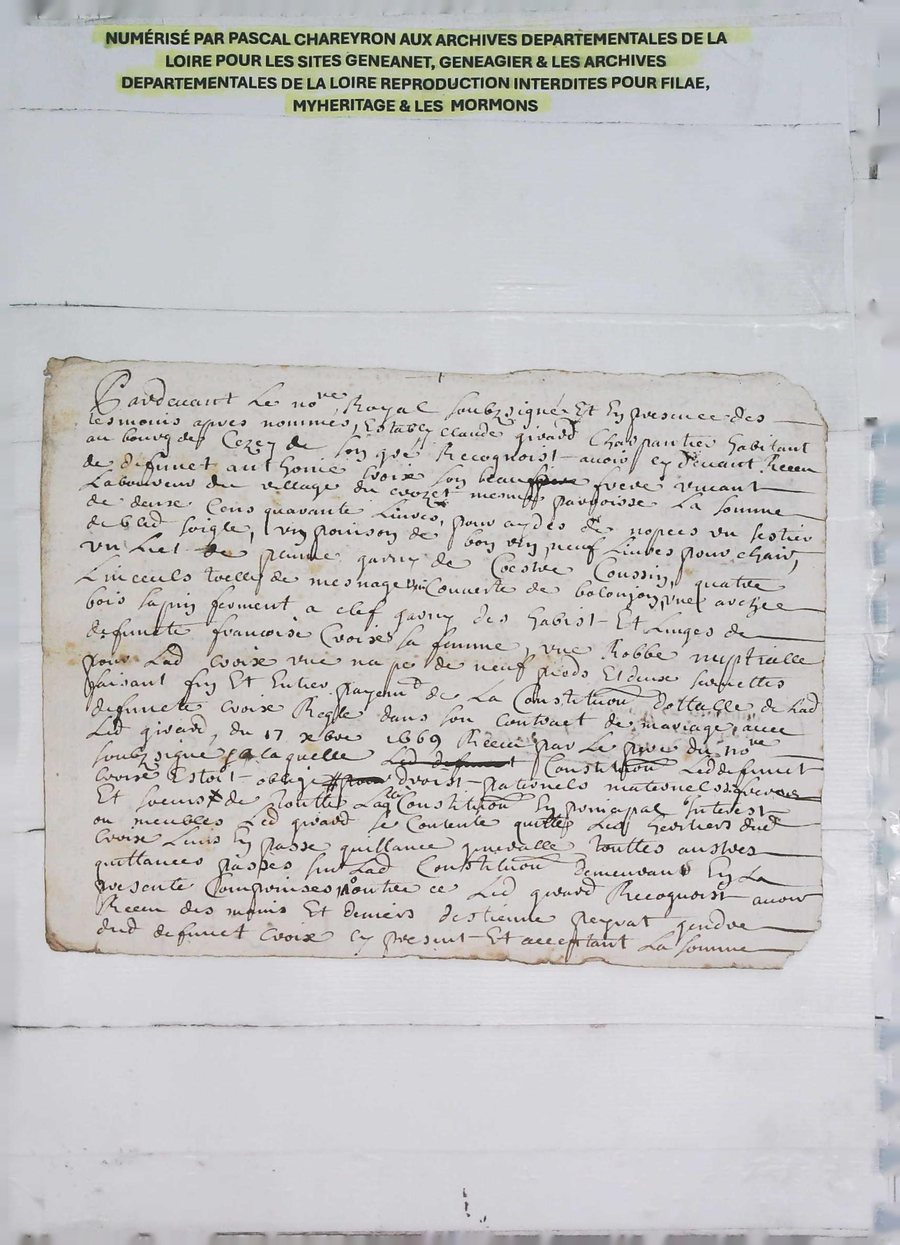 NUMÉRISÉ PAR PASCAL CHAREYRON AUX ARCHIVES DEPARTEMENTALES DE LA
LOIRE POUR LES SITES GENEANET, GENEAGIER & LES ARCHIVES
DEPARTEMENTALES DE LA LOIRE REPRODUCTION INTERDITES POUR FILAE,
MYHERITAGE & LES MORMONS
Pardevant Le no.re Royal soubzsigné Et En presence des
tesmoins apres nommes, Estably claude girard Charpantier habitant
au bourg de Cezey de son gré Recognoist avoir cy devant Receu
de deffunct anthoine Croix son beau frere vivant
Laboureur du village du crozet mesme parroisse La somme
de deux Cens quarante Livres, pour aydes de nopces un sestier
de bled soigle, un poinson de bon vin neuf Livres pour chair,
un Lict de plume garny de Coestre Coussin, quatre
Linceuls toelle de mesnage Couverte de une arche
bois sapin ferment a clef garny des habist Et Linges de
deffuncte francoise Croix sa femme, une Robbe nuptialle
pour Lad Croix une nape de neuf pieds Et deux serviettes
faisant fin Et Entier payem.t de La Constitution dottalle de Lad
deffuncte Croix Regle dans son Contract de mariage, avec
Led girard, du 17 xbre 1669 Receu par Le pere du no.re
soubzsigne laquelle Constitution Led deffunct
Croix Estoit oblige droist paternels maternels
Et soeurs de Constitution En principal Interest
ou meubles Led girard se Contente quitte Les heritiers dud
Croix En passe quittance generalle touttes autres
quittances passes sur Lad Constitution demeurant En La
presente Comprinses, outre ce Led girard Recognoist avoir
Receu des mains Et deniers destienne peyrat gendre
dud deffunct Croix cy present Et acceptant La somme